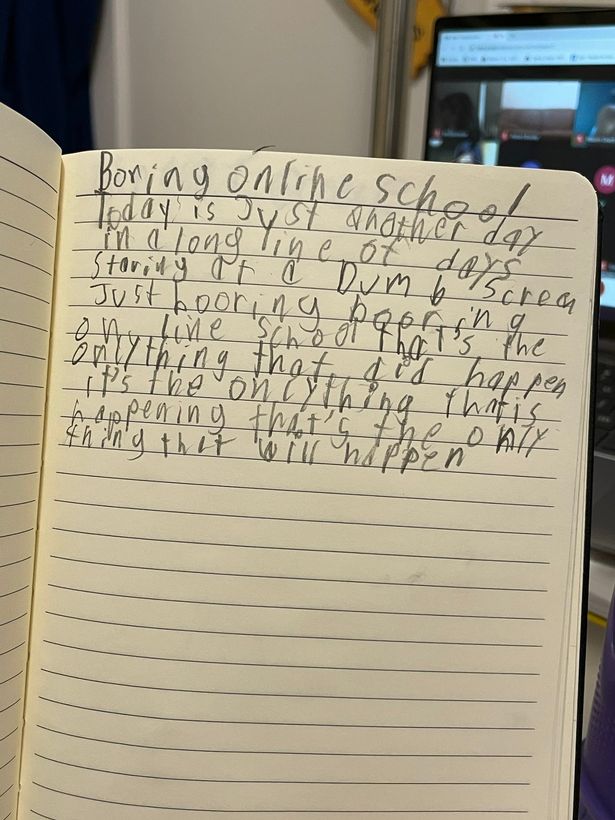 Boring online school
Today is Just another day
in a long line of days
staring at a Dumb screen
Just booring booring
on line school that's the
onlything that did happen
it's the onlything that is
happening that's the only
thing that will happen
M